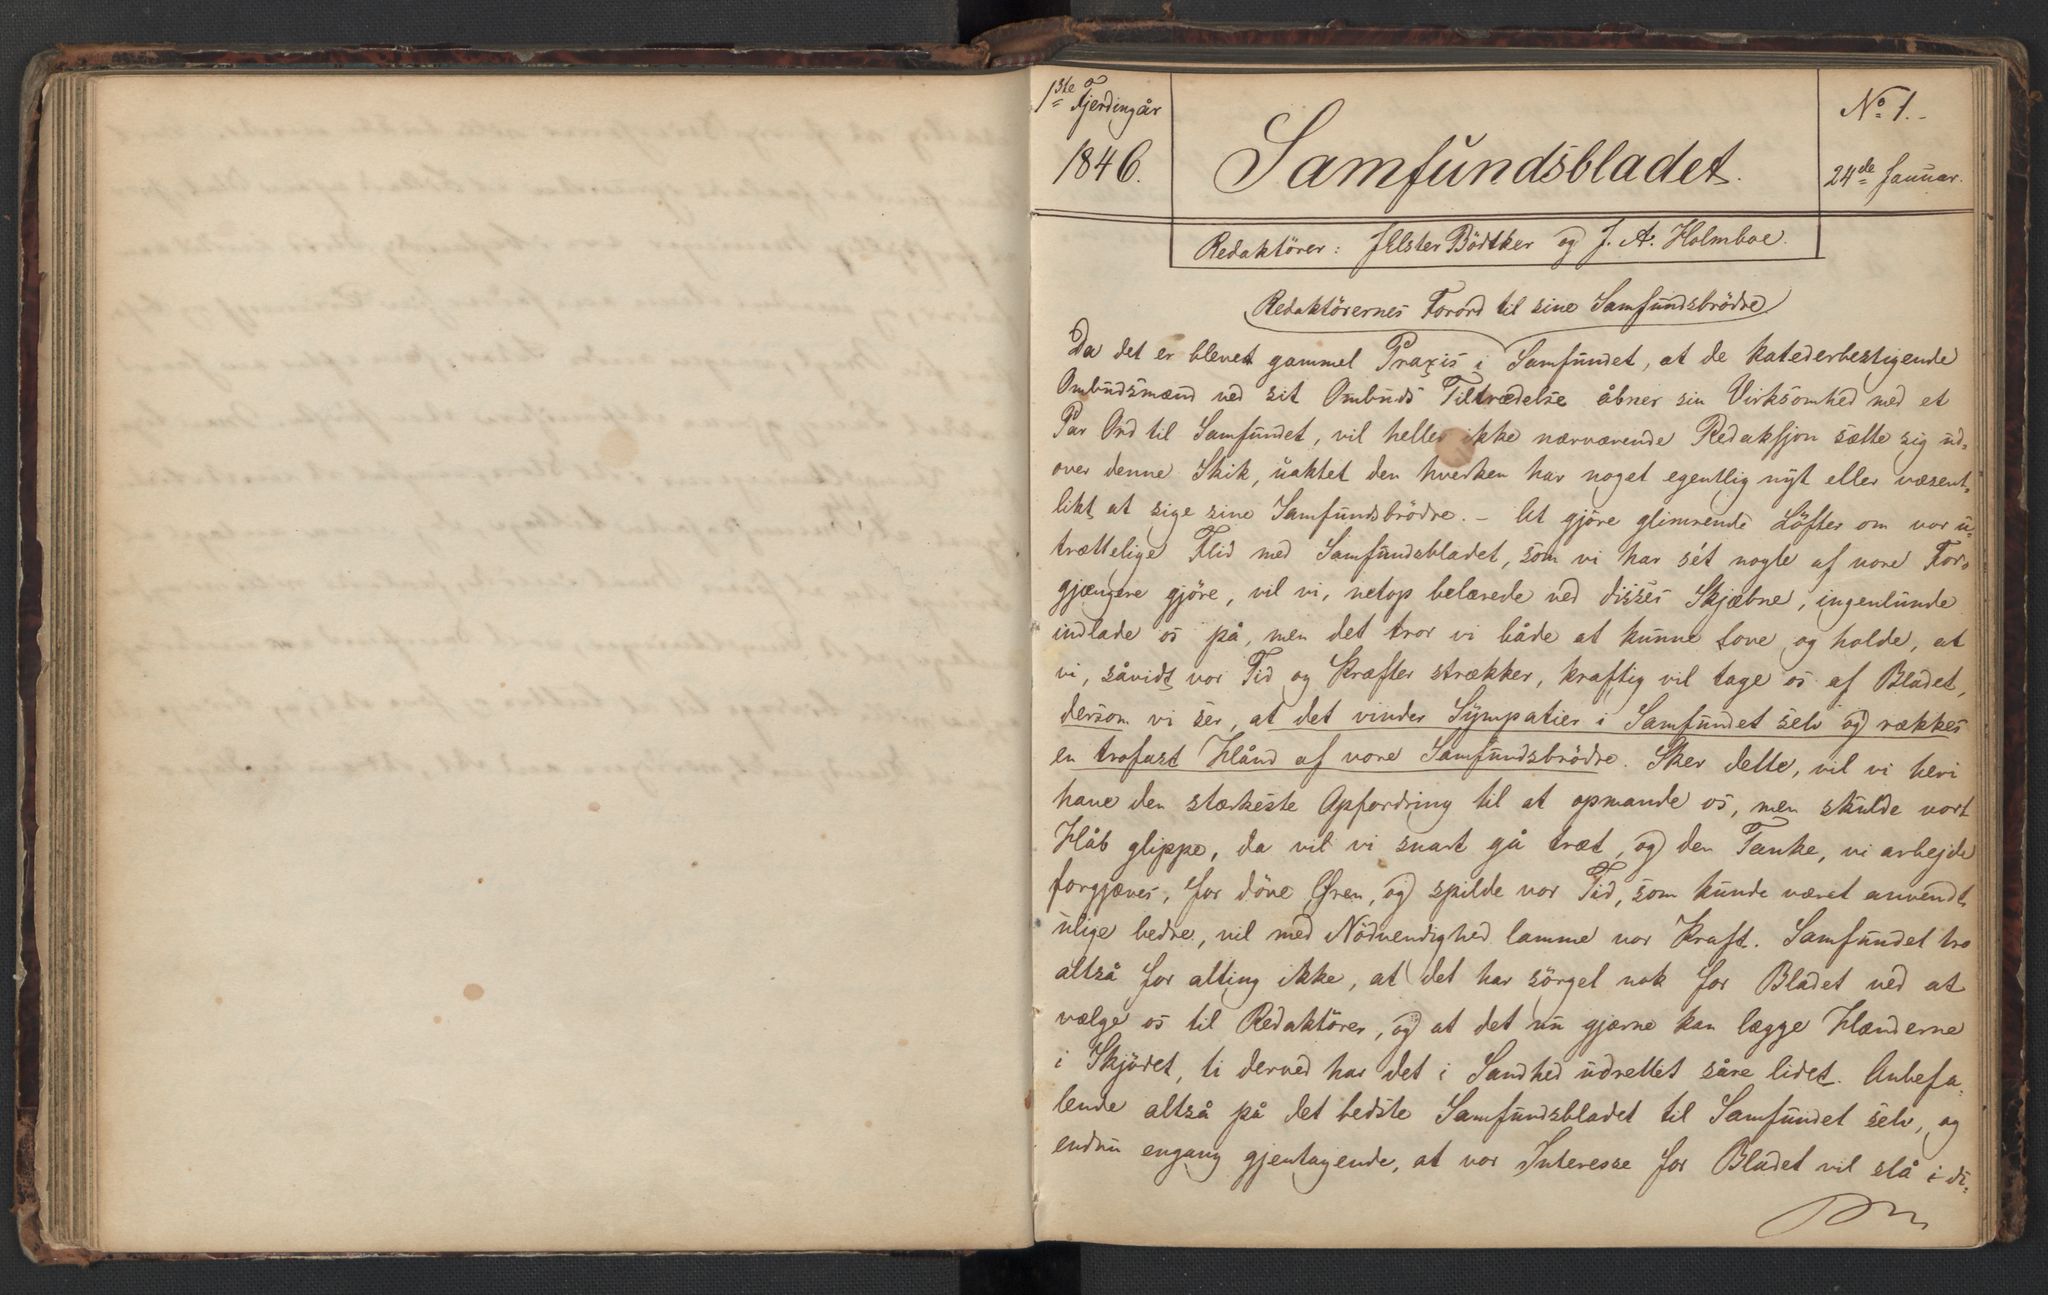 1ste Fjerdingår
1846.
Samfundsbladet.
No 1.
24de Januar.
Redaktörer: J Elster Bödtker og J. A. Holmboe.
Redaktörernes Forord til sine Samfundsbrödre
Da det er blevet gammel Praxis i Samfundet, at de katederbestigende
Ombudsmænd ved sit Ombuds Tiltrædelse åbner sin Virksomhed med et
Par Ord til Samfundet, vil heller ikke nærværende Redaksjon sætte sig ud-
over denne Skik, uaktet den hverken har noget egentlig nyt eller væsent-
likt at sige sine Samfundsbrödre. – At gjöre glimrende Löfter om vor u-
trættelige Flid med Samfundsbladet, som vi har sét nogle af vore For-
gjængere gjöre, vil vi, netop belærede ved disses Skjæbne, ingenlunde
indlade os på, men det tror vi både at kunne love og holde, at
vi, såvidt vor Tid og Kræfter strækker, kraftig vil tage os af Bladet,
dersom vi ser, at det vinder Sympatier i Samfundet selv og rækkes
en trofast Hånd af vore Samfundsbrödre. Sker dette, vil vi heri
have den stærkeste Opfordring til at opmande os, men skulde vort
Håb glippe, da vil vi snart gå træt, og den Tanke, vi arbejde
forgjæves, for döve Øren, og spilde vor Tid, som kunde været anvendt
ulige bedre, vil med Nödvendighed lamme vor Kraft. Samfundet tro
altså for alting ikke, at det har sörget nok for Bladet ved at
vælge os til Redaktörer, og at det nu gjærne kan lægge Hænderne
i Skjödet, ti derved har det i Sandhed udrettet såre lidet. Anbefa-
lende altså på det bedste Samfundsbladet til Samfundet selv, og
endnu engang gjentagende, at vor Interesse for Bladet vil slå i di-